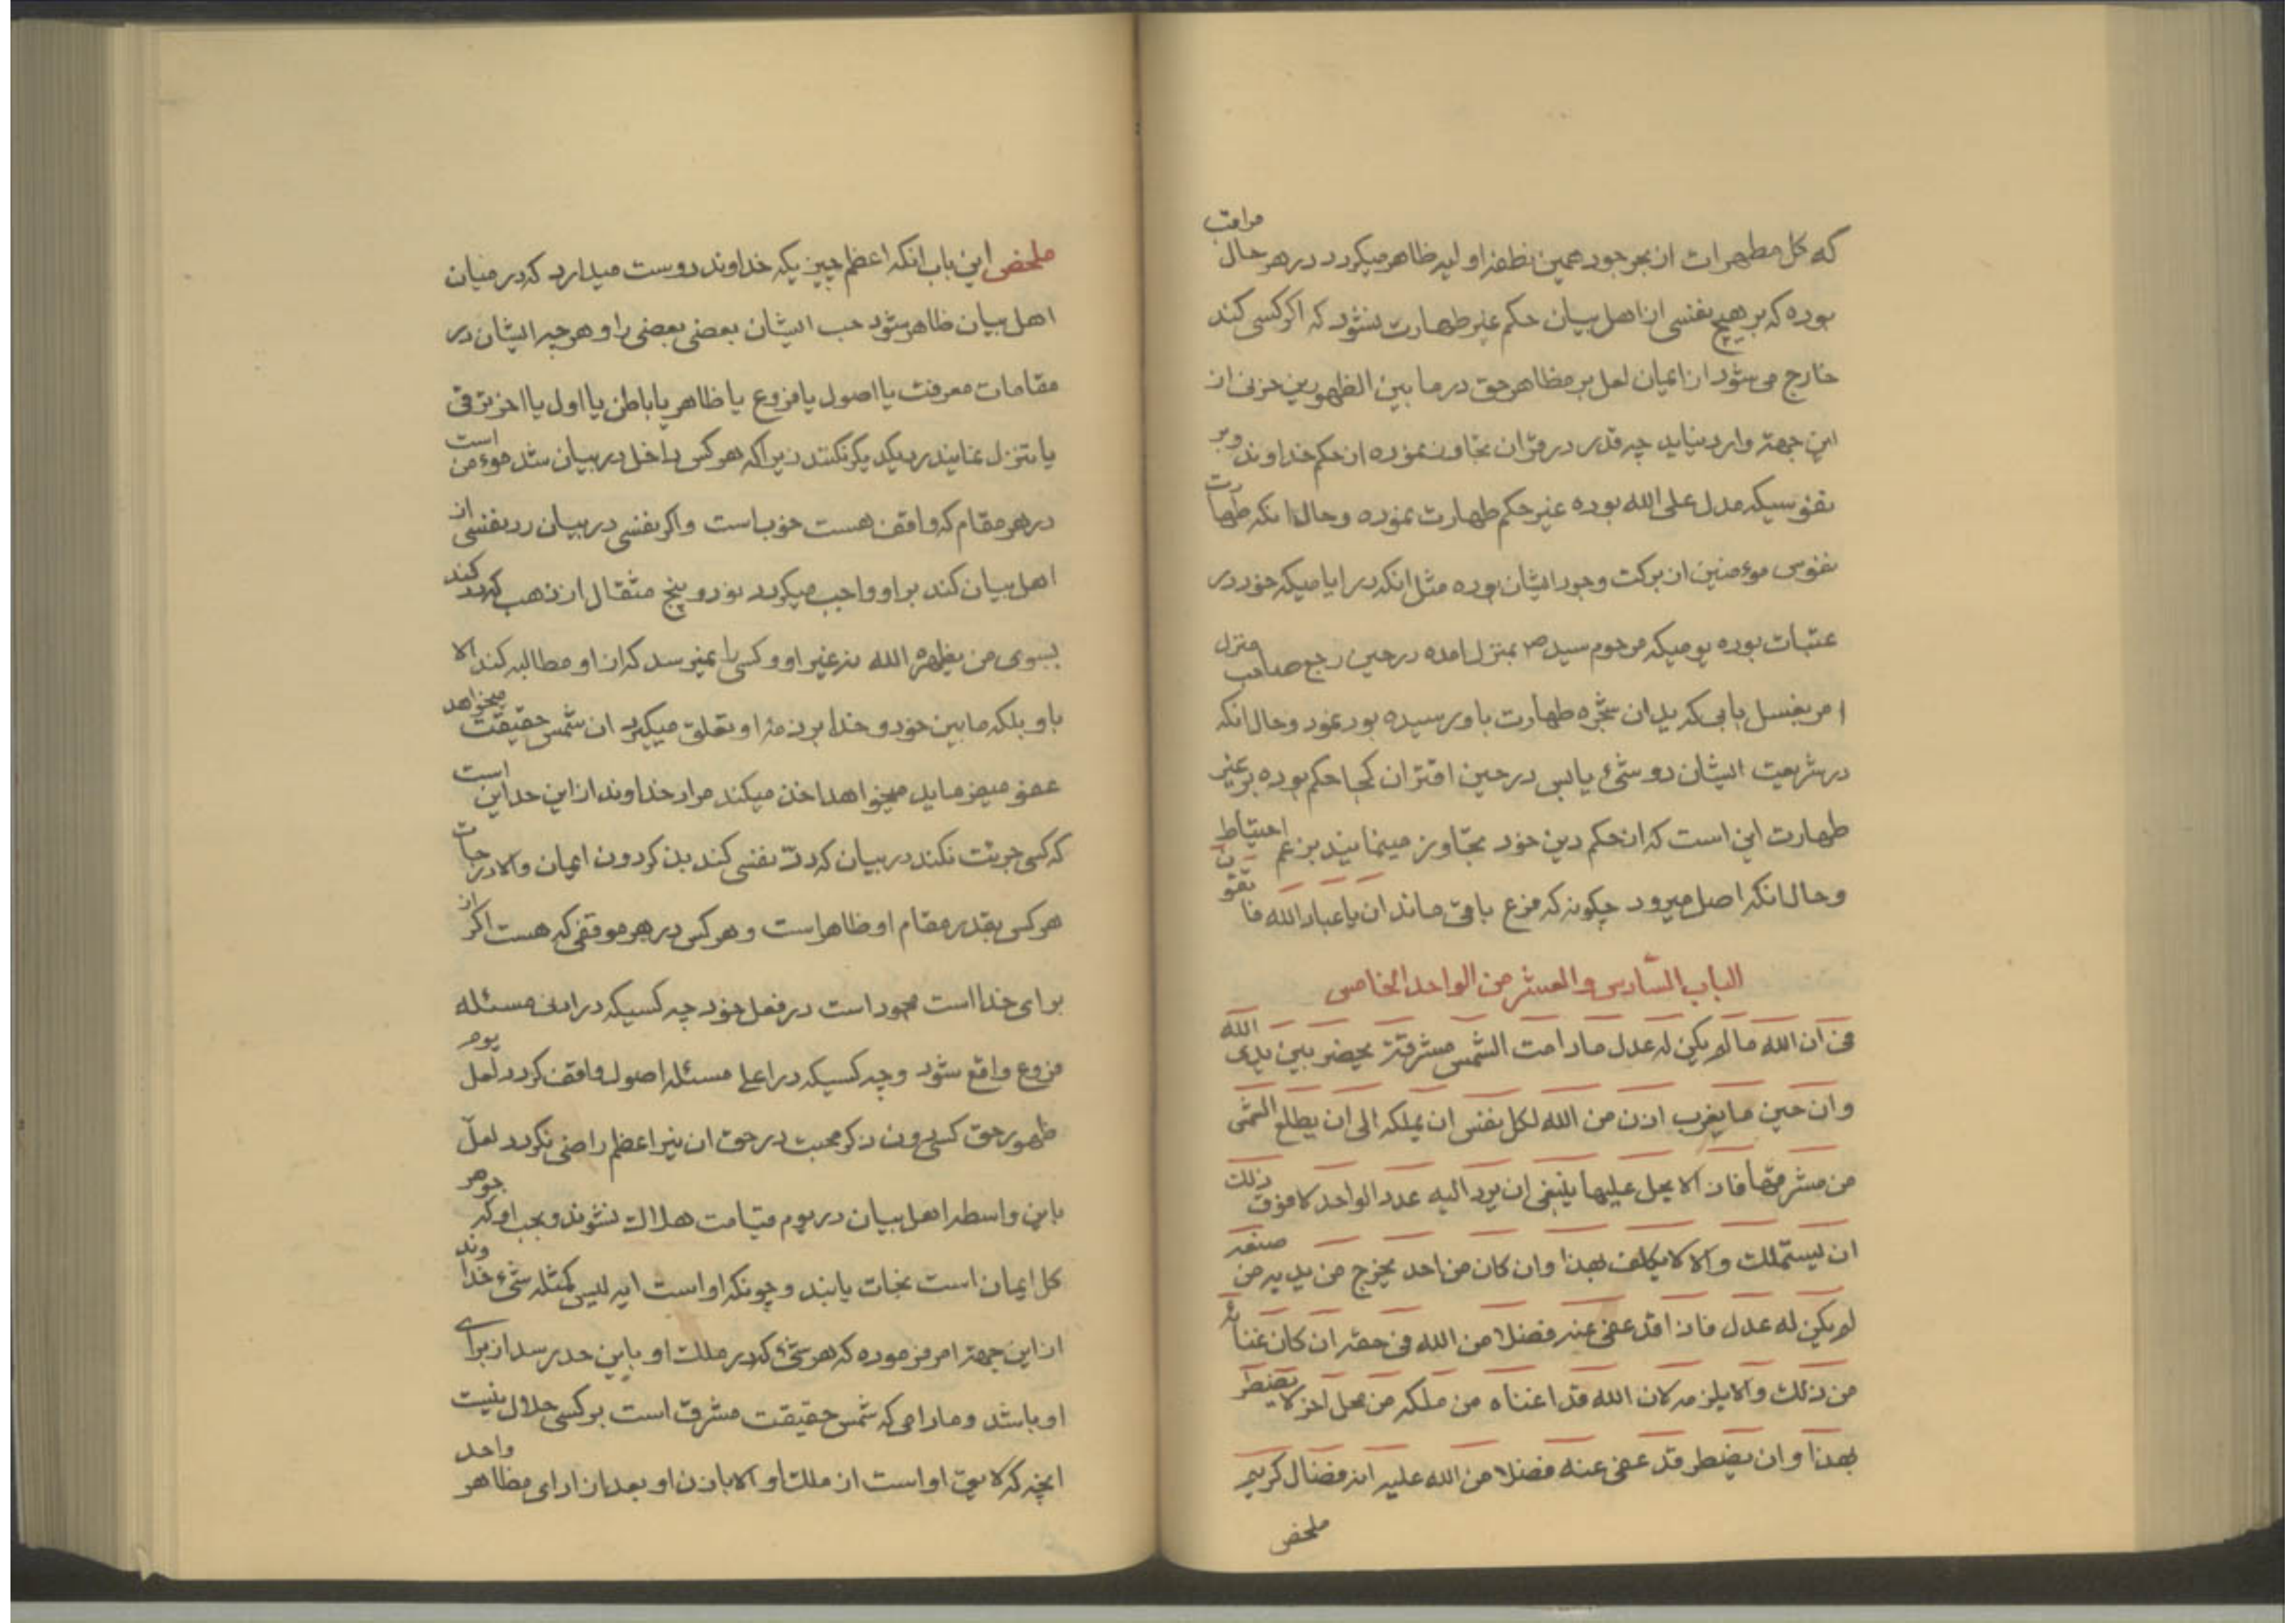 که کل مطهرات از بحر جود همین نطفه اولیه ظاهر میگردد در هر حال مراقب
بوده که بر هیچ نفسی از اهل بیان حکم غیر طهارت نشود که اگر کسی کند
خارج می شود از ایمان لعل بر مظاهر حق در ما بین الظهورین حزنی از
این جهة وارد نیاید چه قدر در قران تجاوز نموده از حکم خداوند و بر
نفوسیکه مدل علی الله بوده غیر حکم طهارت نموده و حال انکه طهارت
نفوس موءمنین از برکت وجود ایشان بوده مثل انکه در ایامیکه خود در
عتبات بوده یومیکه مرحوم سید ص بمنزل امده در حین رجع صاحب منزل
امر بغسل بابی که ید ان شجره طهارت باو رسیده بود نمود و حال انکه
در شریعت ایشان دو شیٔ یابس در حین اقتران کجا حکم بوده بر غیر
طهارت این است که از حکم دین خود تجاوز مینمایند بزعم احتیاط
و حال انکه اصل میرود چگونه که فرع باقی ماند ان یا عباد الله فاتقون
الباب السادس و العشر من الواحد الخامس
فی ان الله ما لم یکن له عدل ما دامت الشمس مشرقة یحضر بین یدی الله
و ان حین ما یغرب اذن من الله لکل نفس ان یملکه الی ان یطلع الشمس
من مشرقها فاذ الا یحل علیها ینبغی ان یرد الیه عدد الواحد لا فوق ذلک
ان یستملک و الا لا یکلف بهذا و ان کان من احد یخرج من یدیه من صنعه
لم یکن له عدل فاذ اقد عفی عنه فضلا من الله فی حقه ان کان غناۂ
من ذلک و الا یلزمه لان الله قد اغناه من ملکه من محل اخر لا یضطر
بهذا و ان یضطر قد عفی عنه فضلا من الله علیه انه فضال کریم
ملخص
ملخص این باب انکه اعظم چیزیکه خداوند دوست میدارد که در میان
اهل بیان ظاهر شود حب ایشان بعضی بعضی را و هر چه ایشان در
مقامات معرفت یا اصول یا فروع یا ظاهر یا باطن یا اول یا اخر ترقی
یا تنزل نمایند رد یکدیگر نکنند زیرا که هر کس داخل در بیان شد موءمن است
در هر مقام که واقف هست خوب است و اگر نفسی در بیان رد نفسی از
اهل بیان کند بر او واجب میگردد نود و پنج مثقال از ذهب که رد کند
بسوی من یظهره الله نه غیر او و کسی را نمیرسد که از او مطالبه کند الا
باو بلکه ما بین خود و خدا بر ذمهٔ او تعلق میگیرد ان شمس حقیقت میخواهد
عفو میفرماید میخواهد اخذ میکند مراد خداوند از این حد این است
که کسی جرئت نکند در بیان که رد نفسی کند بذکر دون ایمان و الا درجات
هر کس بقدر مقام او ظاهر است و هر کس در هر موقفی که هست اگر از
برای خدا است محمود است در فعل خود چه کسیکه در ادنی مسئله
فروع واقع شود و چه کسیکه در اعلی مسئله اصول واقف گردد لعل یوم
ظهور حق کسی دون ذکر محبت در حق ان نیر اعظم راضی نگردد لعل
باین واسطه اهل بیان در یوم قیامت هلاک نشوند و بحب او که جوهر
کل ایمان است نجات یابند و چونکه او است ایه لیس کمثله شیء خداوند
از این جهة امر فرموده که هر شیٔ که در ملک او باین حد رسد از برای
او باشد و مادامی که شمس حقیقت مشرق است بر کسی حلال نیست
انچه که لایق او است از ملک او الا باذن او بعد از ادای مظاهر واحد